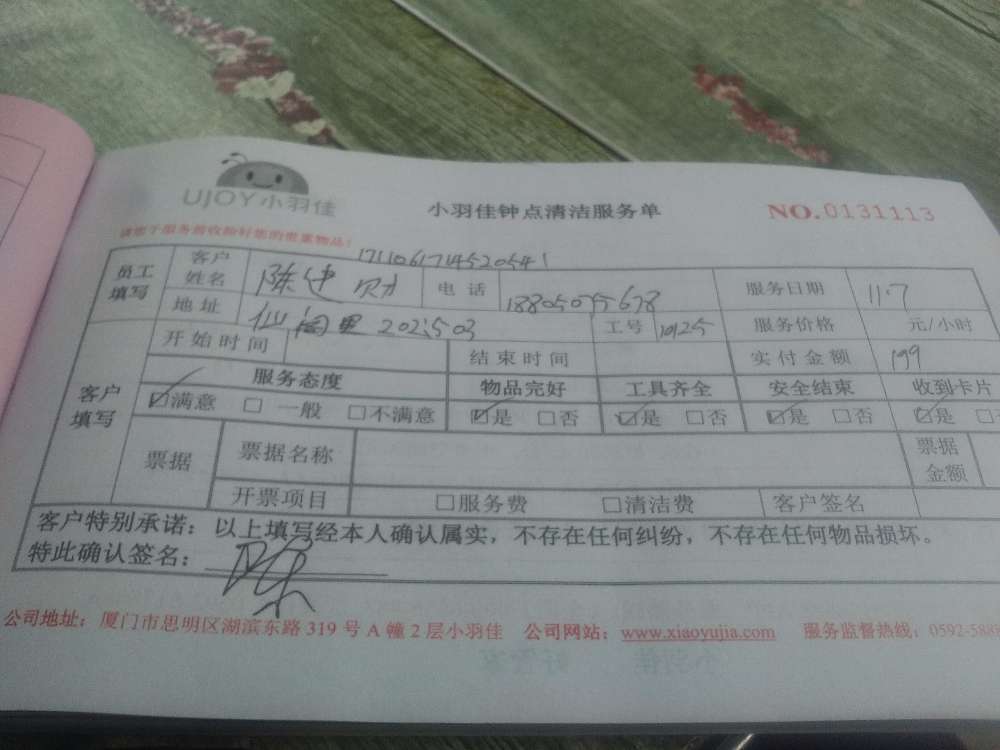 UJOY小羽佳
小羽佳钟点清洁服务单
NO.0131113
请您于服务前收拾好您的贵重物品!
1711061714520541
员工填写 客户姓名 陈建财 电话 服务日期 11.7
地址 202503 工号 服务价格 元/小时
客户填写 开始时间 结束时间 实付金额 199
服务态度 物品完好 工具齐全 安全结束 收到卡片
☑满意 □一般 □不满意 ☑是 □否 ☑是 □否 ☑是 □否 ☑是 □
票据 票据名称 票据金额
开票项目 □服务费 □清洁费 客户签名
客户特别承诺：以上填写经本人确认属实，不存在任何纠纷，不存在任何物品损坏。
特此确认签名：陈
公司地址：厦门市思明区湖滨东路 319 号 A 幢 2 层小羽佳 公司网站：www.xiaoyujia.com 服务监督热线：0592-588